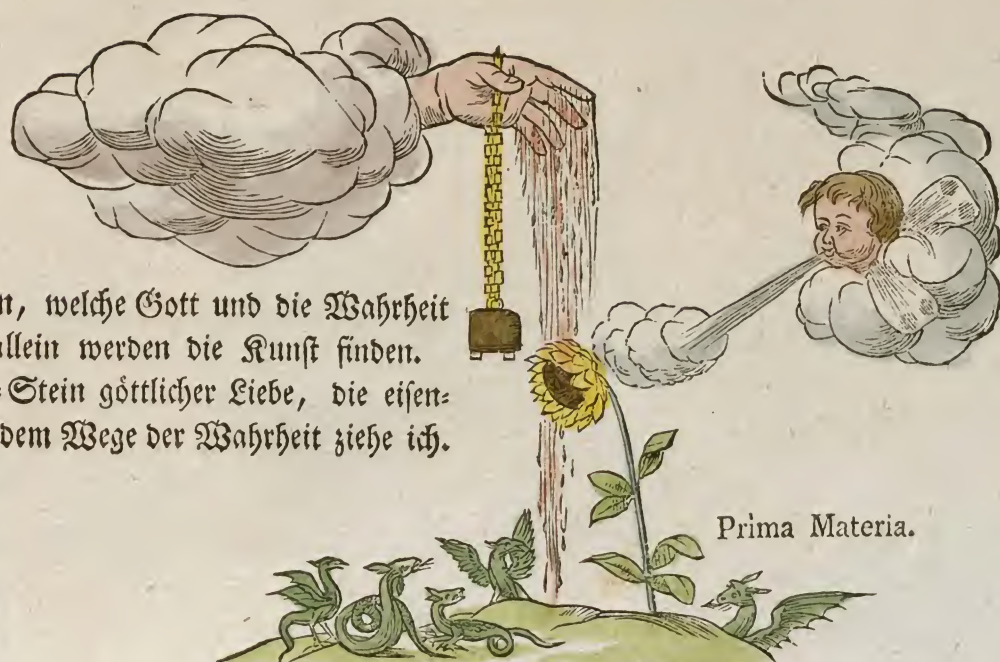 n, welche Gott und die Wahrheit
allein werden die Kunst finden.
=Stein göttlicher Liebe, die eisen=
dem Wege der Wahrheit ziehe ich.
Prima Materia.